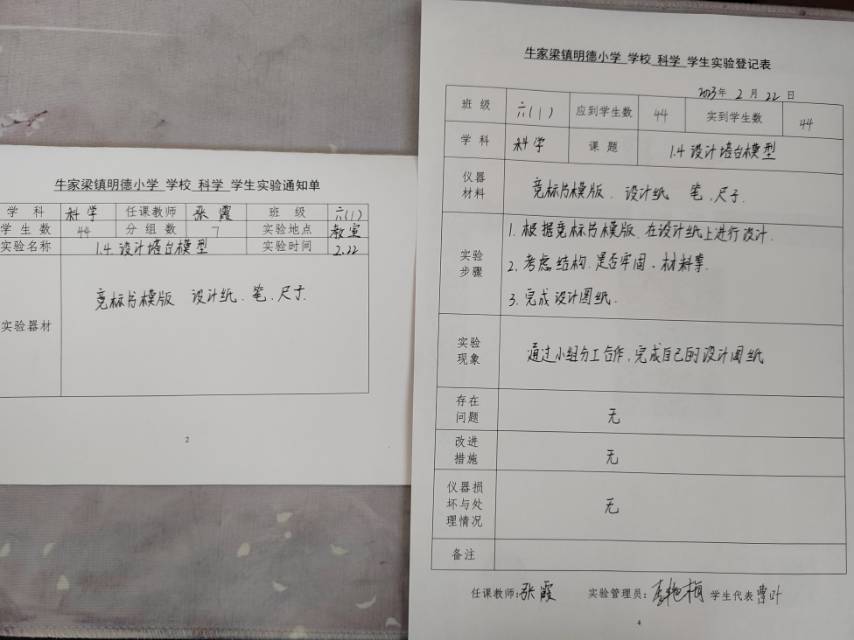 牛家梁镇明德小学 学校 科学 学生实验通知单
学 科 科学 任课教师 张霞 班 级 六(1)
学 生 数 44 分 组 数 7 实验地点 教室
实验名称 1.4 设计塔台模型 实验时间 2.22
实验器材 竞标书模版 设计纸、笔、尺寸
2
牛家梁镇明德小学 学校 科学 学生实验登记表
2023年 2 月 22 日
班 级 六(1) 应到学生数 44 实到学生数 44
学 科 科学 课 题 1.4 设计塔台模型
仪器
材料 竞标书模版、设计纸 笔、尺子.
实验
步骤
1. 根据竞标书模版、在设计纸上进行设计.
2. 考虑结构、是否牢固、材料等.
3. 完成设计图纸.
实验
现象 通过小组分工合作,完成自己的设计图纸
存在
问题 无
改进
措施 无
仪器损
坏与处
理情况 无
备注
任课教师:张霞 实验管理员: 学生代表
4